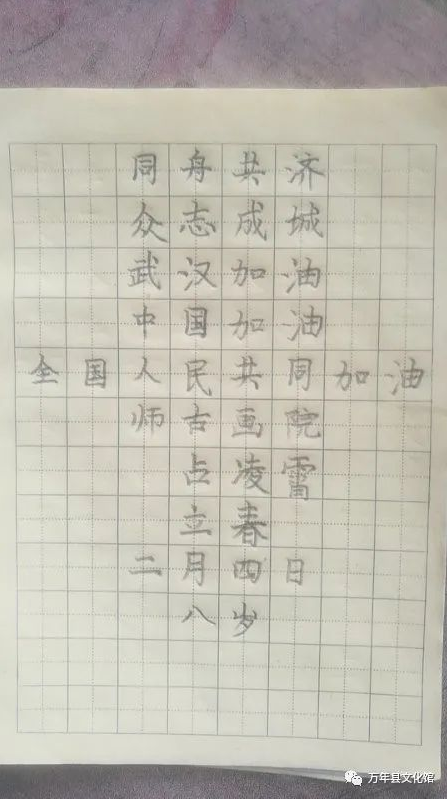 同舟共济
众志成城
武汉加油
中国加油
全国人民共同加油
师古画院
占凌霄
立春
二月四日
八岁
万年县文化馆